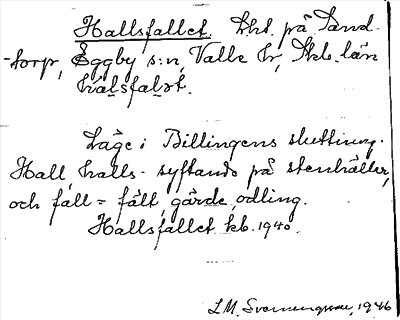 Hallsfallet. Lht. på Sand-
-torp, Eggby s:n, Valle hd, Skb. län
halsfalst.
Läge i Billingens sluttning.
Hall, halls- syftande på stenhällar,
och fall = fält, gärde, odling.
Hallsfallet kb. 1940.
L.M. 1946